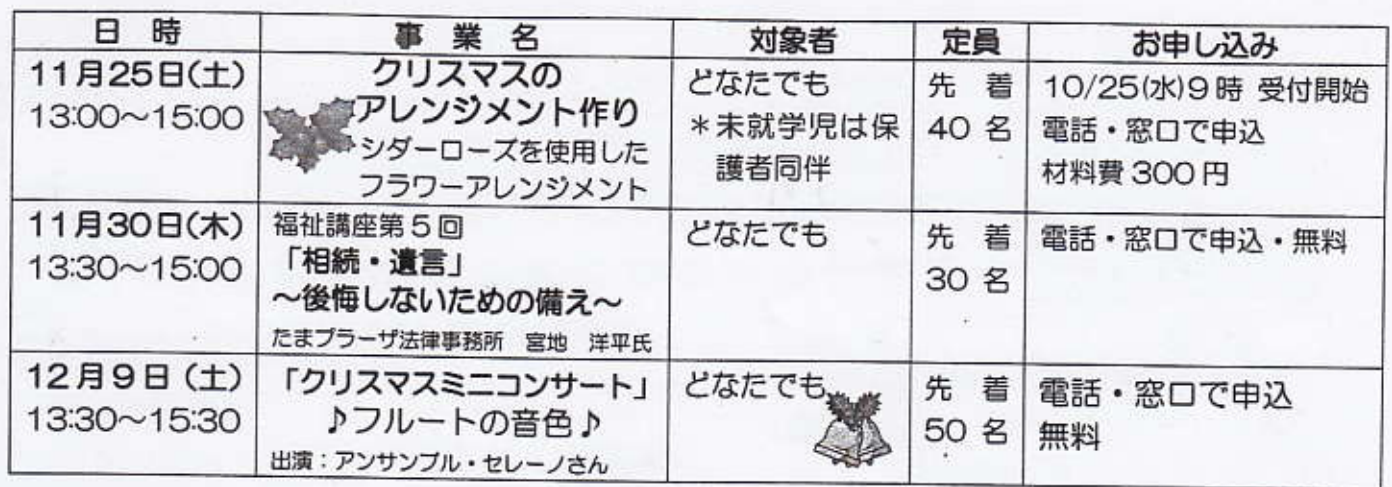 日 時 事 業 名 対象者 定員 お申し込み
11月25日(土)
13:00～15:00
クリスマスの
アレンジメント作り
シダーローズを使用した
フラワーアレンジメント
どなたでも
＊未就学児は保
護者同伴
先 着
40 名
10/25(水)9時 受付開始
電話・窓口で申込
材料費300円
11月30日(木)
13:30～15:00
福祉講座第5回
「相続・遺言」
～後悔しないための備え～
たまプラーザ法律事務所 宮地 洋平氏
どなたでも
先 着
30 名
電話・窓口で申込・無料
12月9日(土)
13:30～15:30
「クリスマスミニコンサート」
♪フルートの音色♪
出演：アンサンブル・セレーノさん
どなたでも
先 着
50 名
電話・窓口で申込
無料